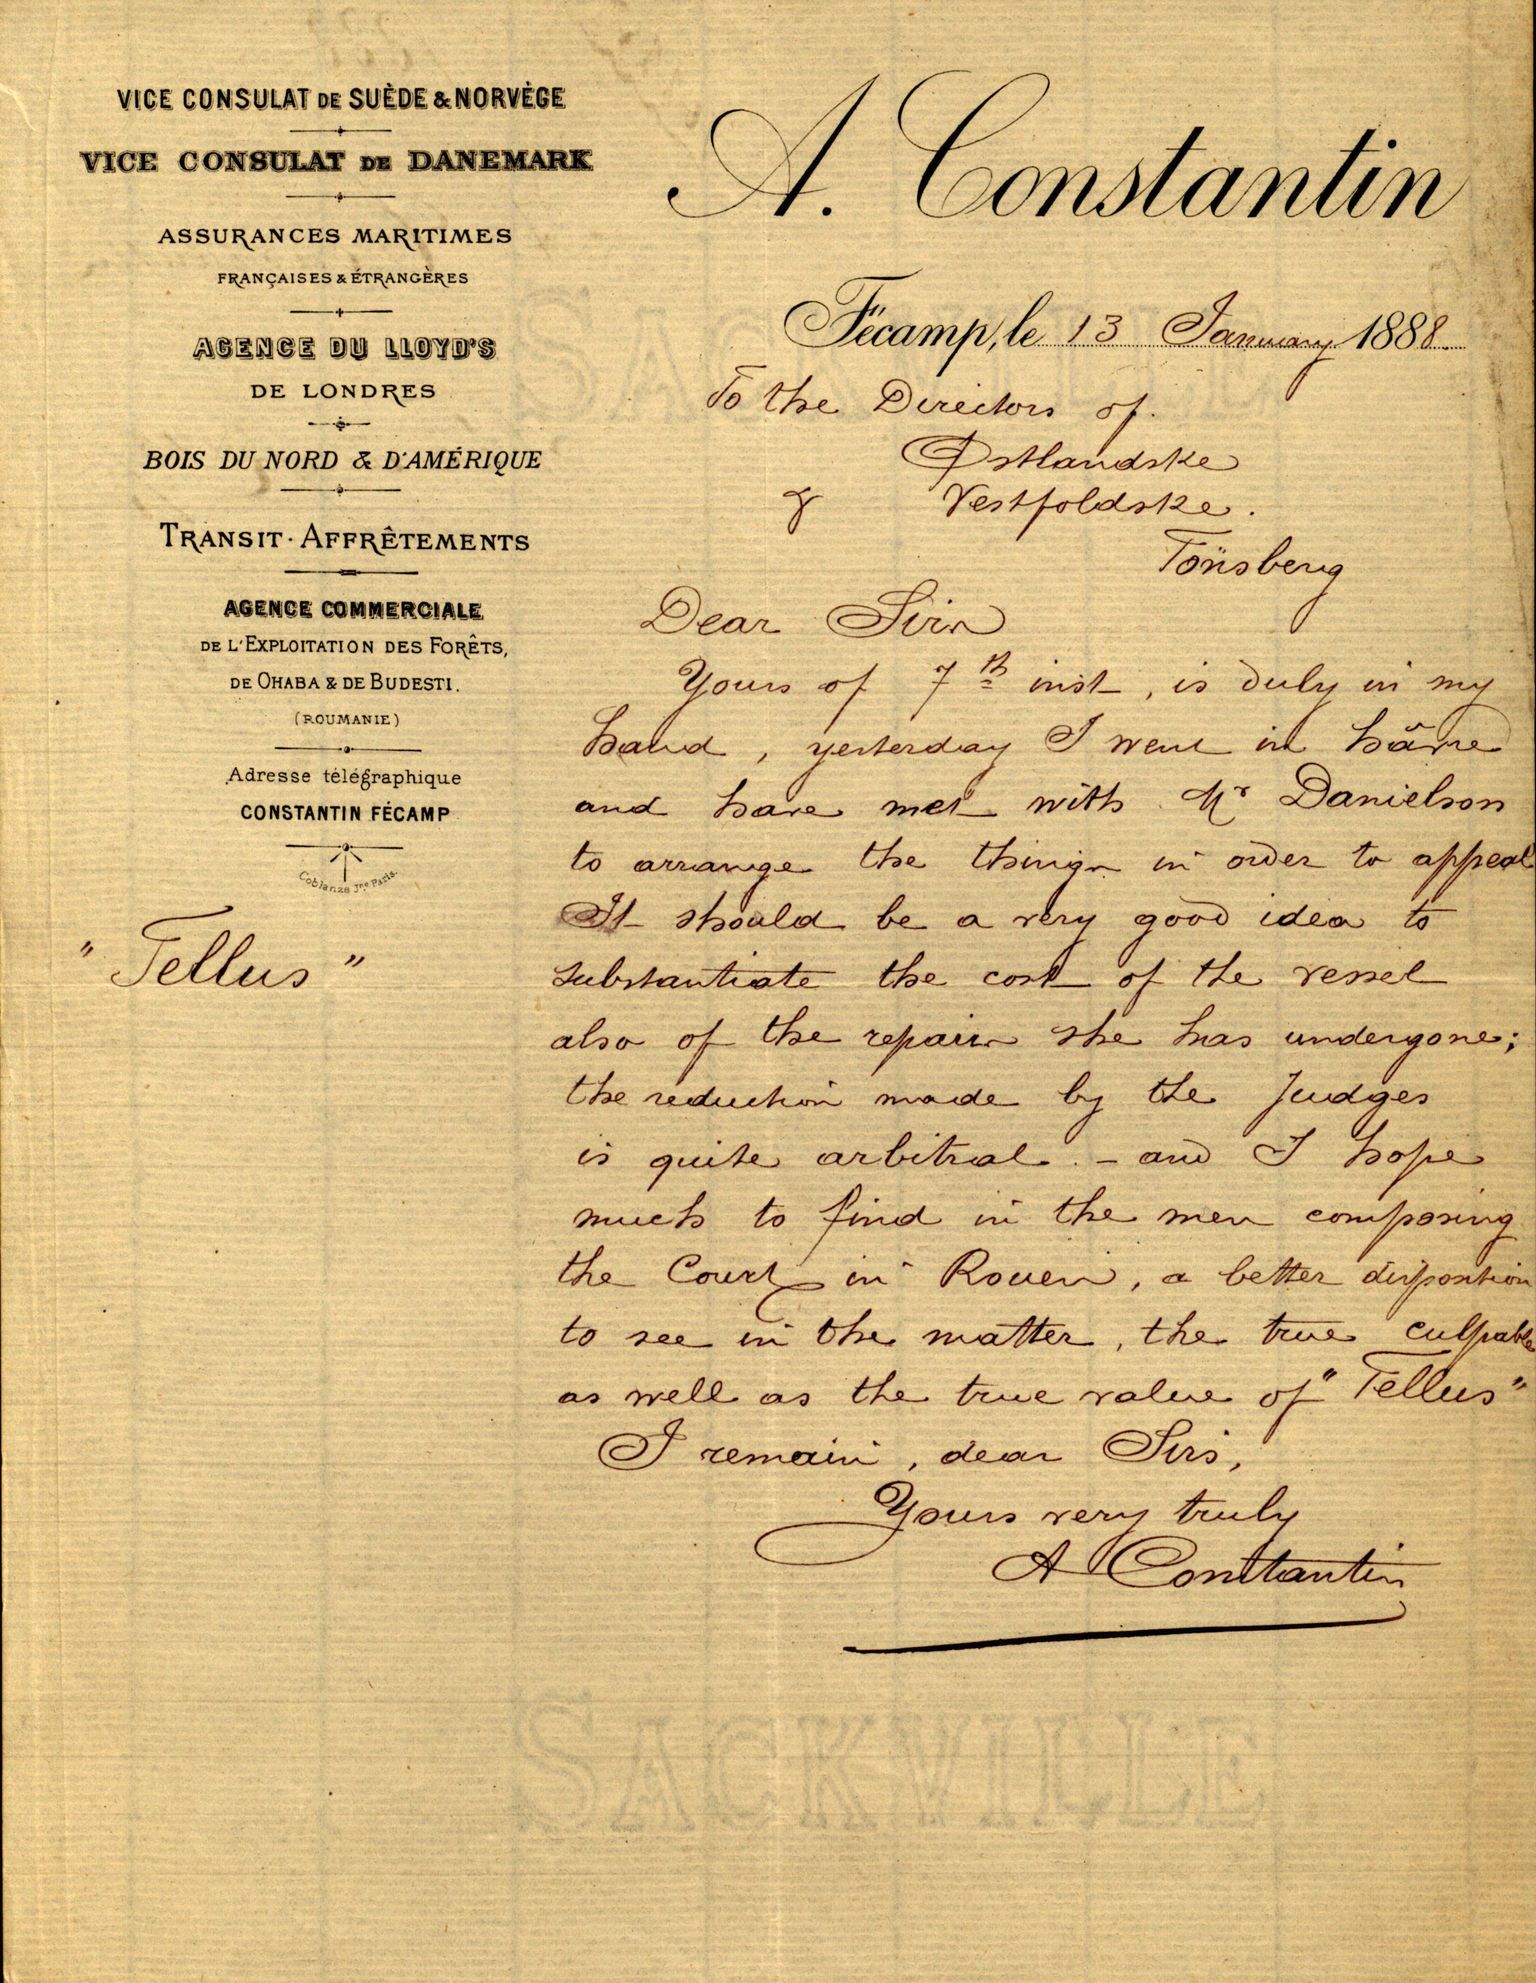 VICE CONSULAT DE SUÈDE & NORVÈGE
VICE CONSULAT DE DANEMARK
ASSURANCES MARITIMES
FRANÇAISES & ÉTRANGÈRES
AGENCE DU LLOYD'S
DE LONDRES
BOIS DU NORD & D'AMÉRIQUE
TRANSIT · AFFRÊTEMENTS
AGENCE COMMERCIALE
DE L'EXPLOITATION DES FORÊTS,
DE OHABA & DE BUDESTI.
(ROUMANIE)
Adresse télégraphique
CONSTANTIN FÉCAMP
Coblanze Jne Paris.
"Tellus"
A. Constantin
Fécamp, le 13 January 1888.
To the Directors of
Østlandske
& Vestfoldske.
Tönsberg
Dear Sirs
Yours of 7th inst, is duly in my
hand, yesterday I went in hâvre
and have met with Mr Danielson
to arrange the things in order to appeal
It should be a very good idea to
substantiate the cost of the vessel
also of the repairs she has undergone;
the reduction made by the Judges
is quite arbitral. - and I hope
much to find in the men composing
the Court in Rouen, a better disposition
to see in the matter, the true culpable
as well as the true value of "Tellus"
I remain, dear Sirs,
Yours very truly
A Constantin
SACKVILLE